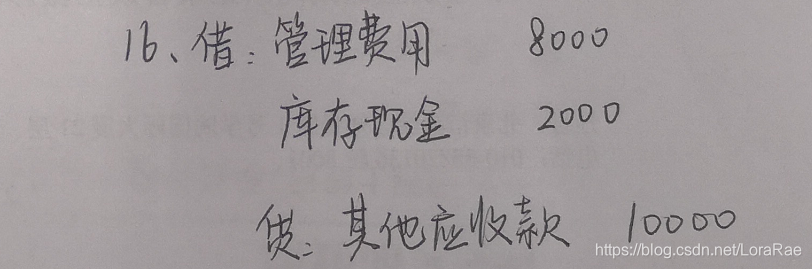 16、借：管理费用 8000
库存现金 2000
贷：其他应收款 10000
https://blog.csdn.net/LoraRae